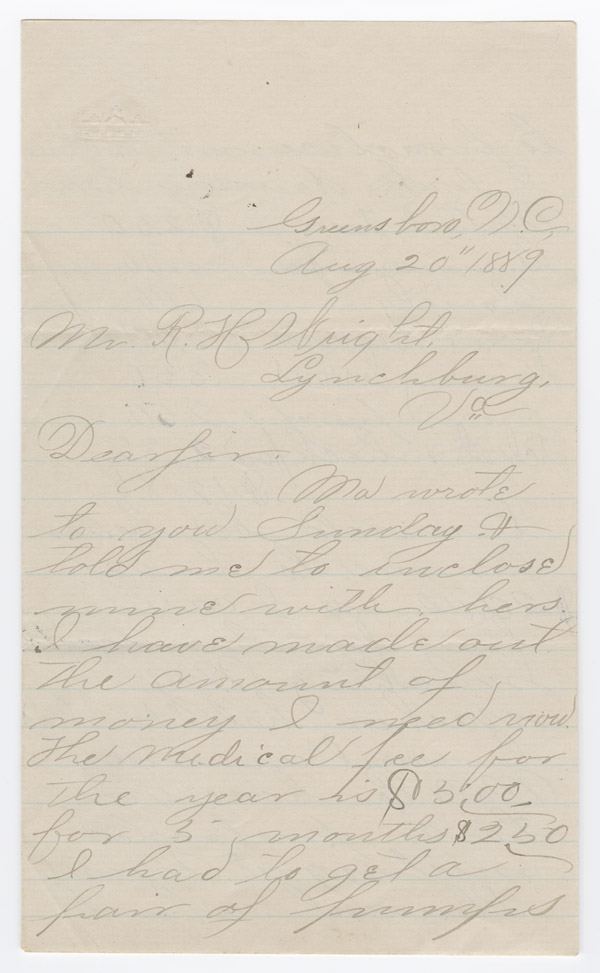 Greensboro, N.C,
Aug 20" 1889
Mr. R. H. Wright,
Lynchburg,
Va
Dear sir.
Ma wrote
to you Sunday &
told me to inclose
mine with hers.
I have made out
the amount of
money I need now.
The Medical fee for
the year is $5.00
for 5 months $2.50
I had to get a
pair of pumps